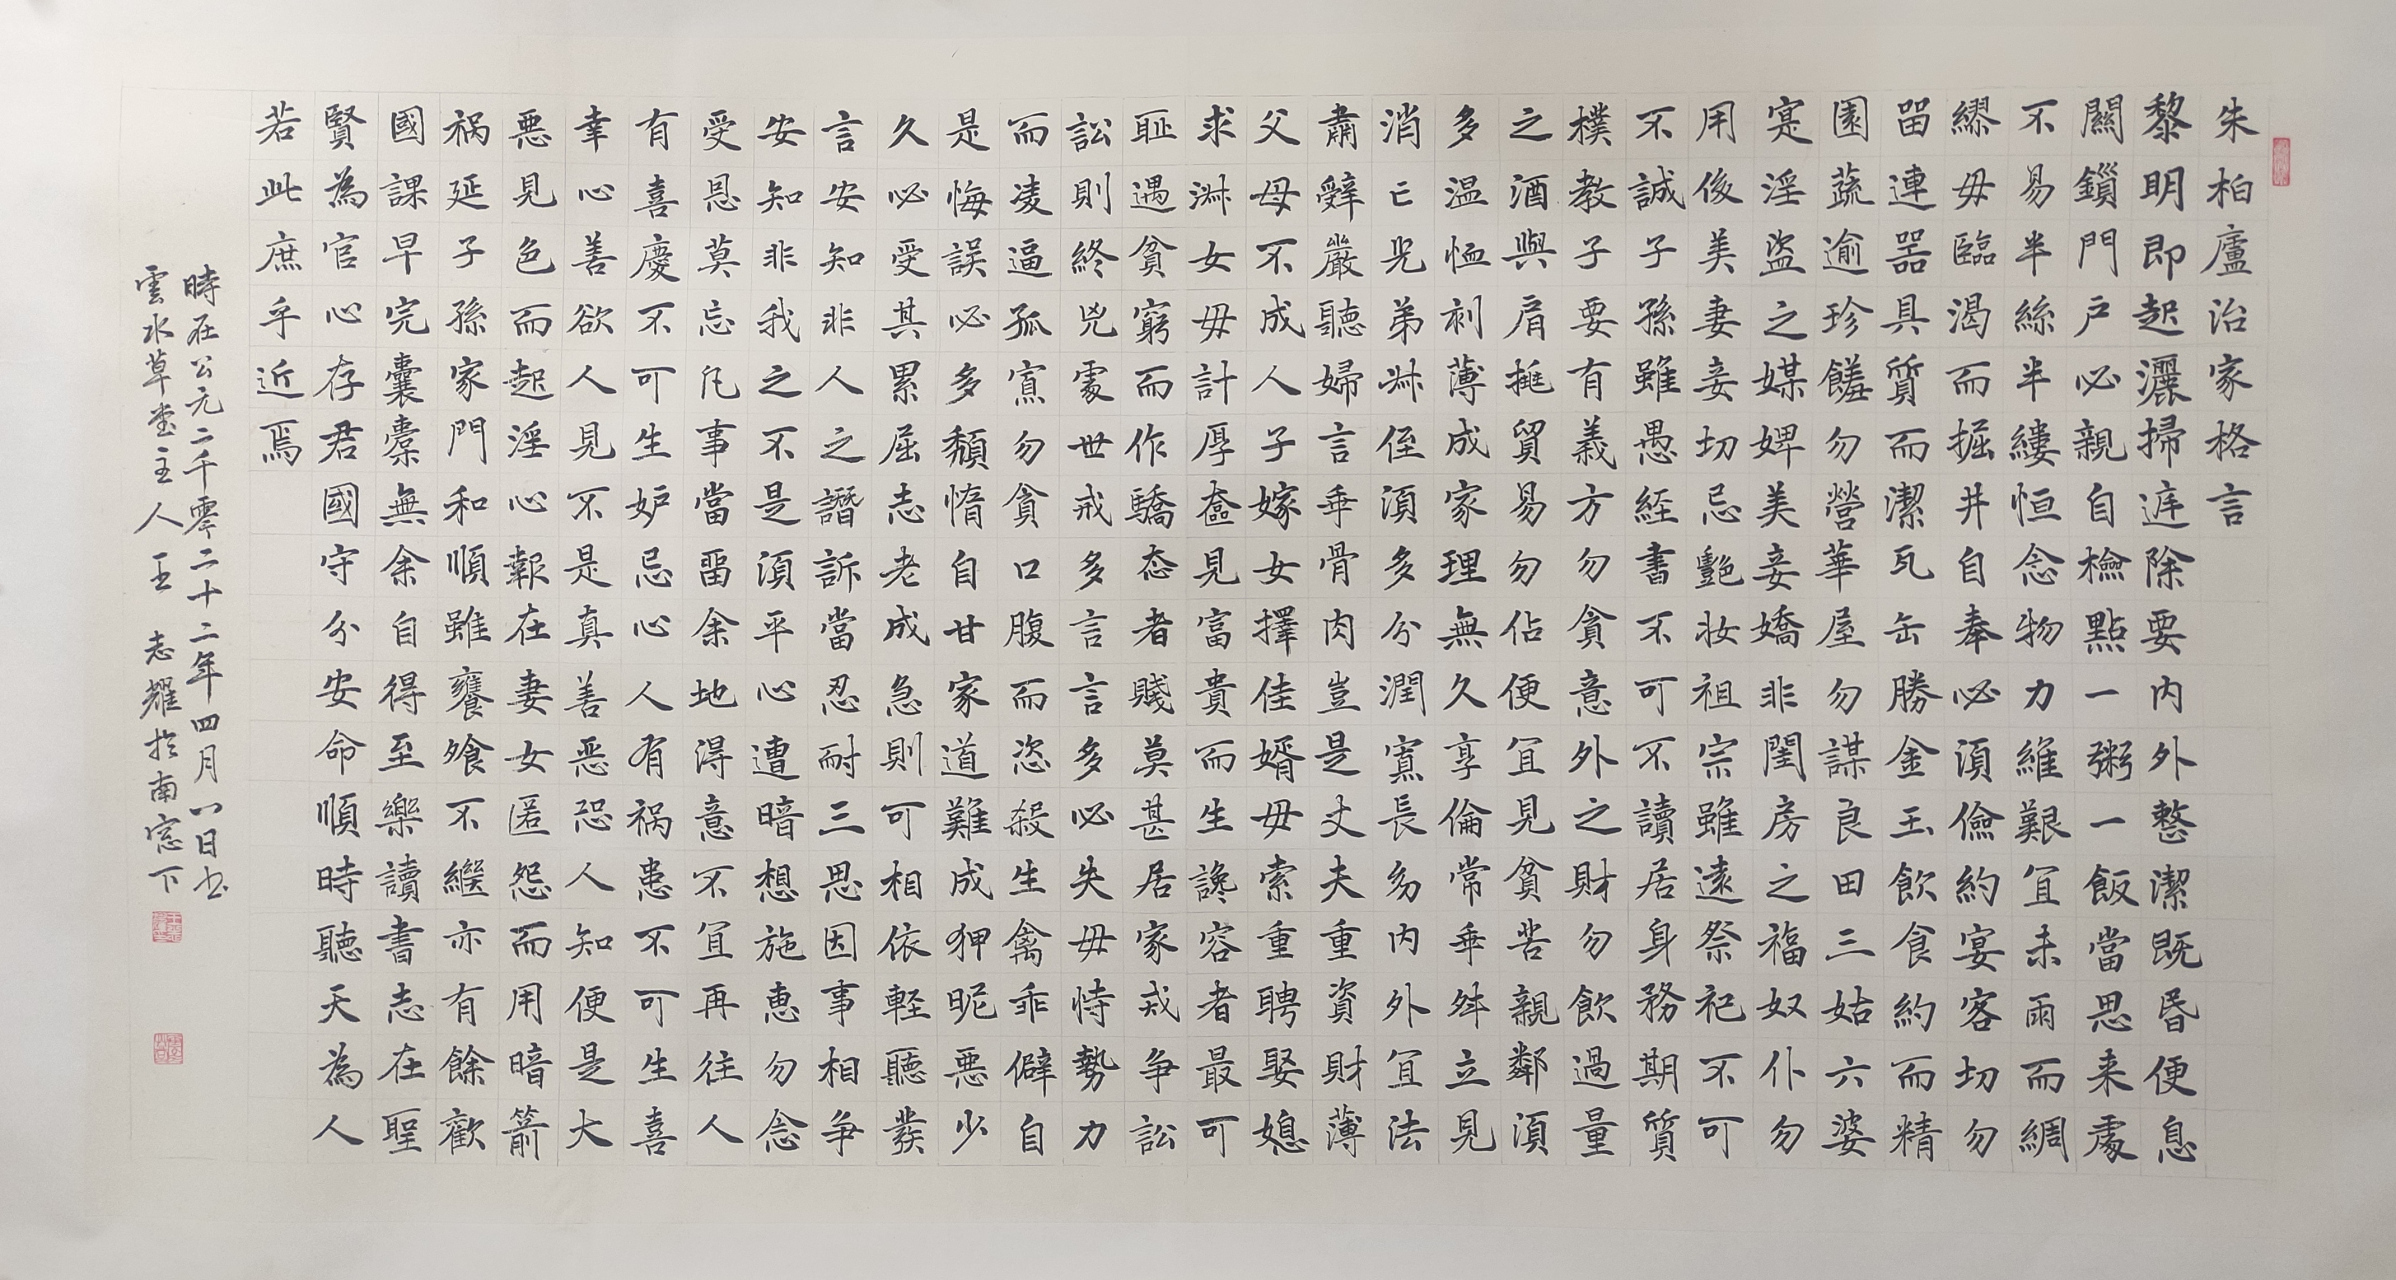 朱柏廬治家格言
黎明即起灑掃庭除要内外整潔既昏便息
關鎖門戶必親自檢點一粥一飯當思来處
不易半絲半縷恒念物力維艱宜未雨而綢
繆毋臨渴而掘井自奉必須儉約宴客切勿
留連器具質而潔瓦缶勝金玉飲食約而精
園蔬逾珍饈勿營華屋勿謀良田三姑六婆
寔淫盜之媒婢美妾嬌非閨房之福奴仆勿
用俊美妻妾切忌艷妝祖宗雖遠祭祀不可
不誠子孫雖愚經書不可不讀居身務期質
樸教子要有義方勿貪意外之財勿飲過量
之酒與肩挑貿易勿佔便宜見貧苦親鄰須
多温恤刻薄成家理無久享倫常乖舛立見
消亡兄弟叔侄須多分潤寡長幼内外宜法
肅辭嚴聽婦言乖骨肉豈是丈夫重資財薄
父母不成人子嫁女擇佳婿毋索重聘娶媳
求淑女毋計厚奩見富貴而生讒容者最可
恥遇貧窮而作驕态者賤莫甚居家戒争訟
訟則終兇處世戒多言言多必失毋恃勢力
而凌逼孤寡勿貪口腹而恣殺生禽乖僻自
是悔誤必多頹惰自甘家道難成狎昵悪少
久必受其累屈志老成急則可相依軽聽發
言安知非人之譖訴當忍耐三思因事相争
安知非我之不是須平心遭暗想施惠勿念
受恩莫忘凡事當留余地得意不宜再往人
有喜慶不可生妒忌心人有禍患不可生喜
幸心善欲人見不是真善恶恐人知便是大
悪見色而起淫心報在妻女匿怨而用暗箭
禍延子孫家門和順雖饔飧不繼亦有餘歡
國課早完囊橐無余自得至樂讀書志在聖
賢為官心存君國守分安命順時聽天為人
若此庶乎近焉
時在公元二千零二十二年四月八日书
雲水草堂主人王志耀於南窓下